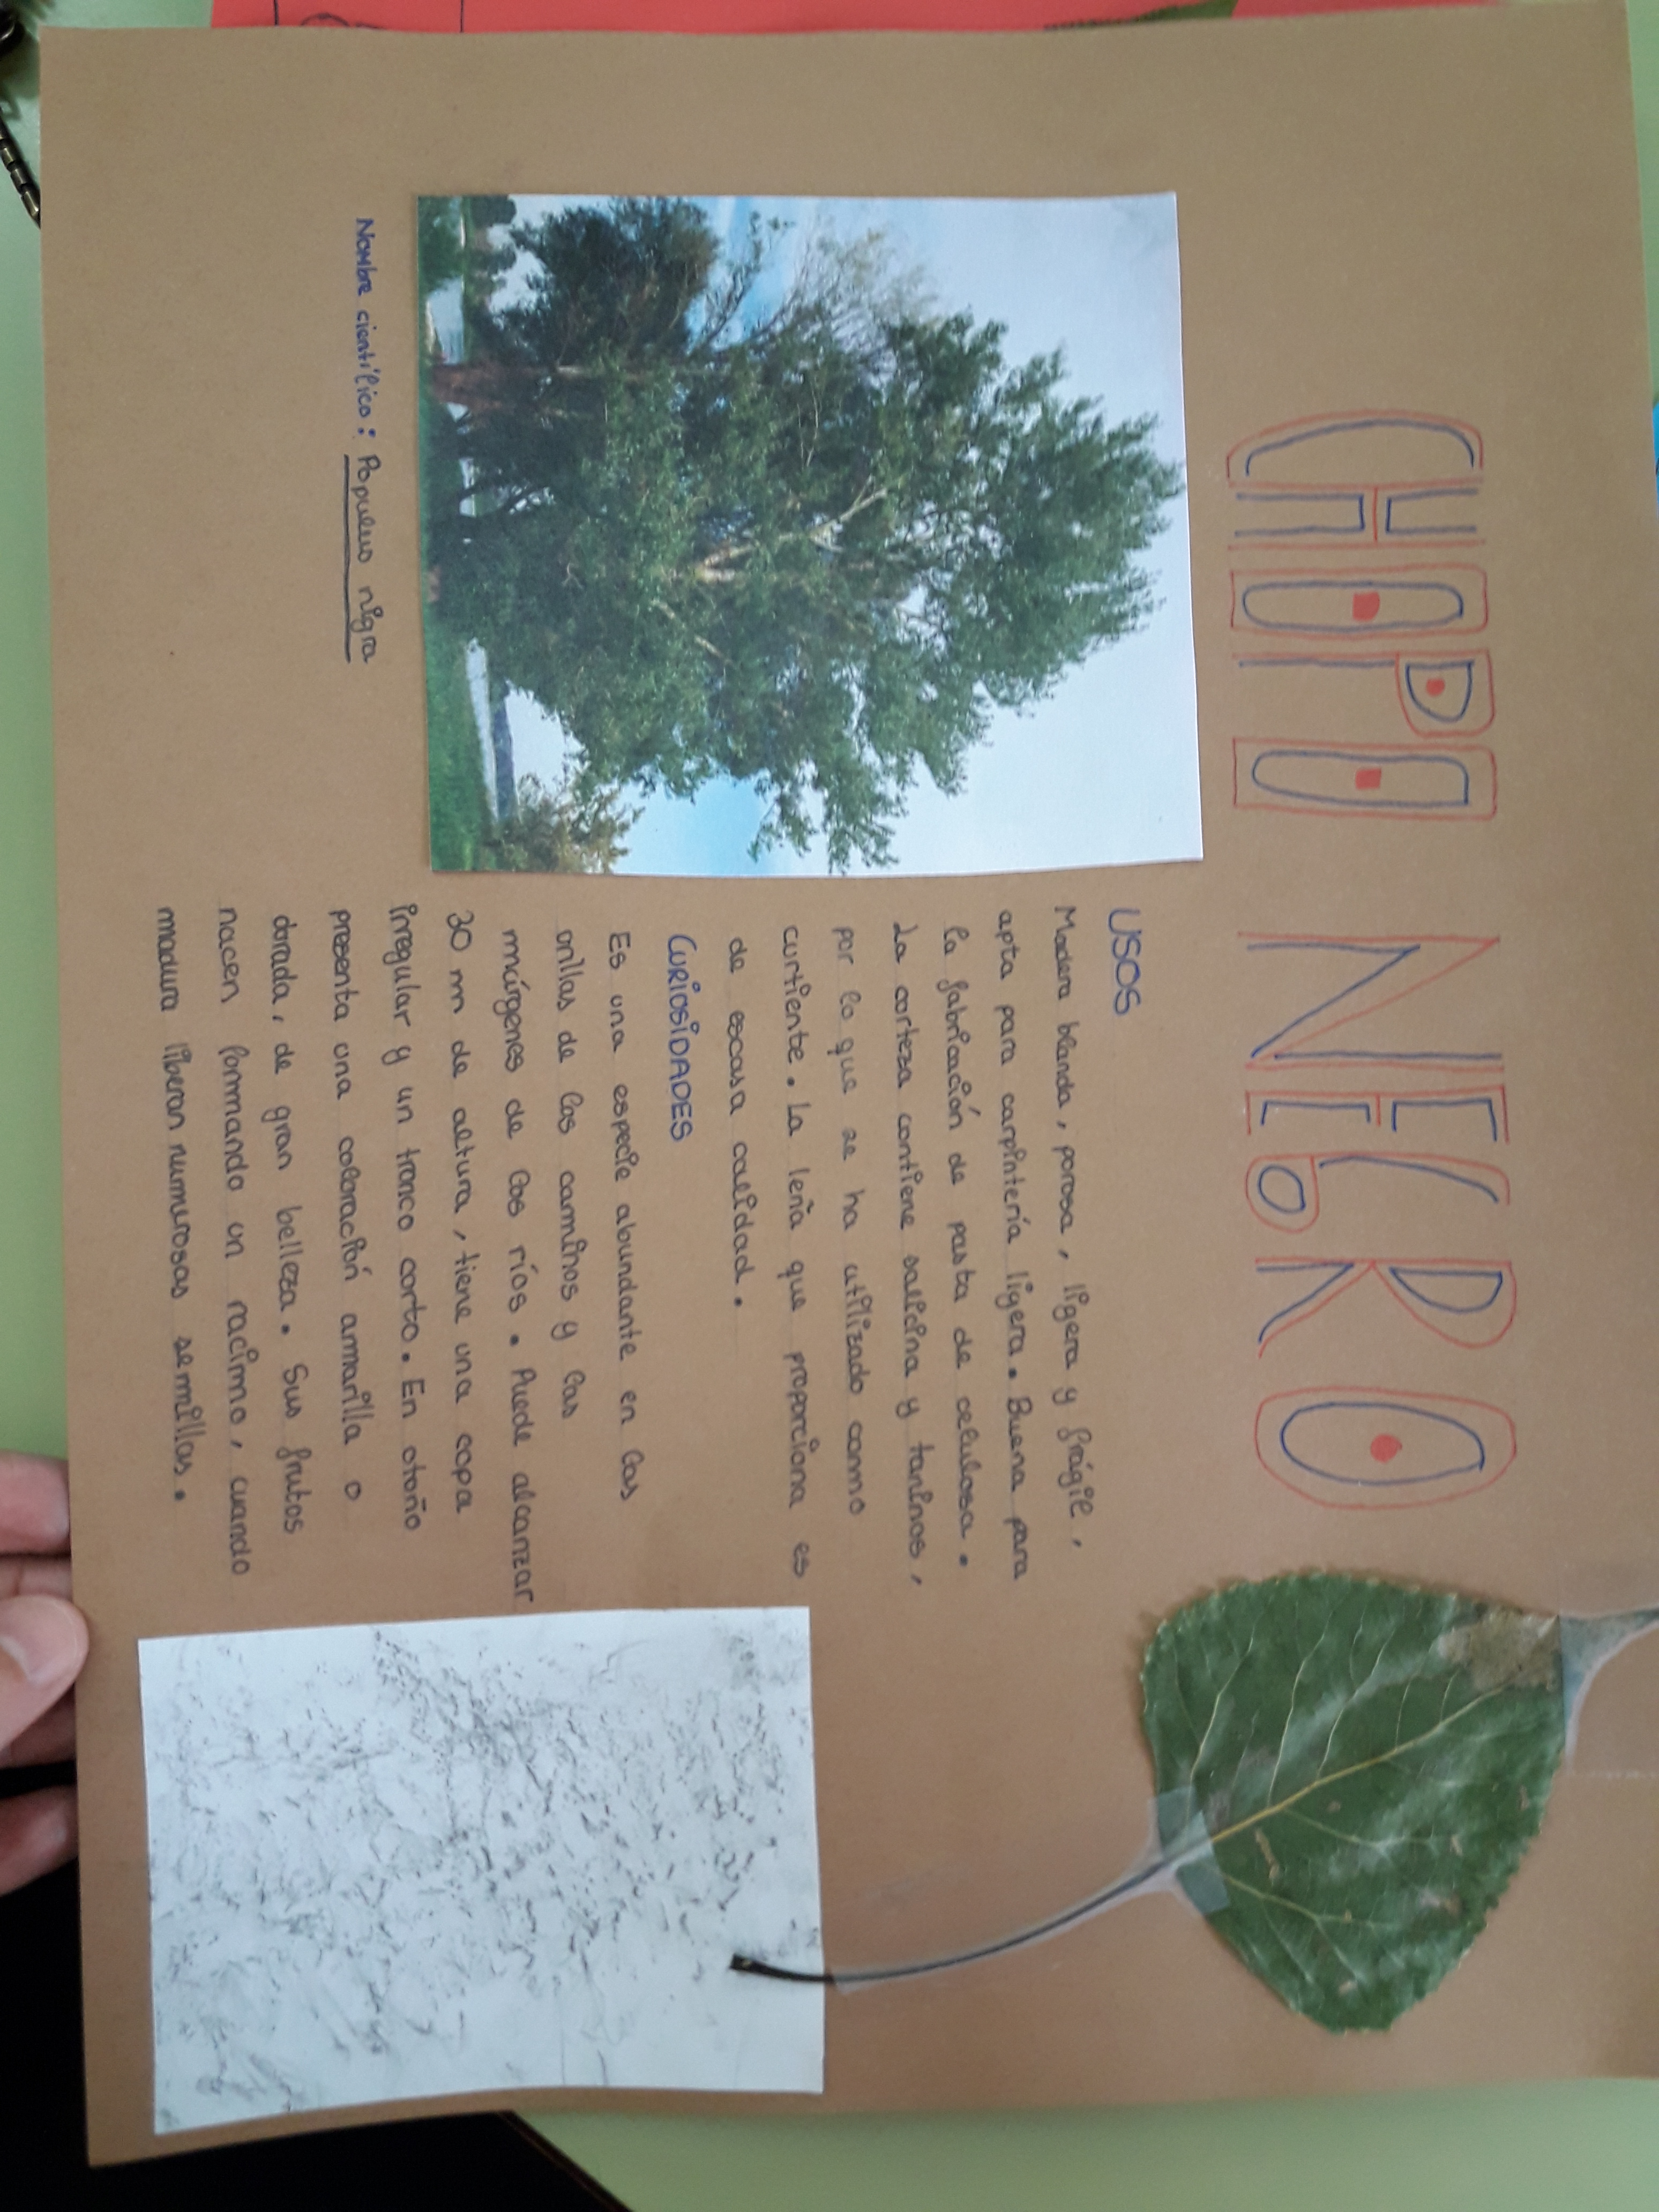 CHOPO NEGRO
USOS
Madera blanda, porosa, ligera y frágil,
apta para carpintería ligera. Buena para
la fabricación de pasta de celulosa.
La corteza contiene salicina y taninos,
por lo que se ha utilizado como
curtiente. La leña que proporciona es
de escasa calidad.
CURIOSIDADES
Es una especie abundante en las
orillas de los caminos y las
márgenes de los ríos. Puede alcanzar
30 m de altura, tiene una copa
irregular y un tronco corto. En otoño
presenta una coloración amarilla o
dorada, de gran belleza. Sus frutos
nacen formando un racimo, cuando
madura liberan numurosas semillas.
Nombre científico: Populus nigra